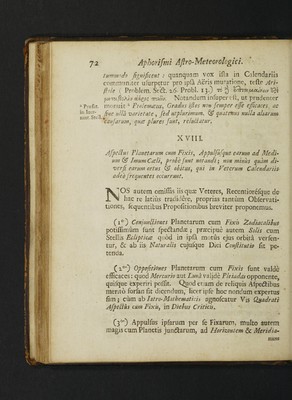 72 Aphorismi Astro-Meteorologici.
tumundo significent: quanquam vox ista in Calendariis
communiter usurpetur pro ipsa Aëris mutatione, teste Ari-
stote ( Problem. Sect. 26. Probl. 13.)
Notandum insuper est, ut prudenter
monuit * Ptolemæus, Gradus istos non semper esse efficaces, ac
sine ulla varietate, sed ut plurimum, & quatenus nulla aliarum
causarum, quæ plures sunt, reluctatur.
* Præfat.
XVIII.
Aspectus Planetarum cum Fixis, Appulsusque eorum ad Medi-
um & Imum Cæli, probè sunt notandi; non minùs quàm di-
versi earum ortus & obitus, qui in Veterum Calendariis
adeo frequentes occurrunt.
NOS autem omissis iis quæ Veteres, Recentioresque de
hac re latiùs tradidêre, proprias tantùm Observati-
tiones, sequentibus Propositionibus breviter proponemus.
(1°) Conjunctiones Planetarum cum Fixis Zodiacalibus
potissimùm sunt spectandæ; præcipuè autem Solis cum
Stellis Eclipticæ quòd in ipsâ mundi ejus orbitâ versen-
tur, & ab iis Naturalis cujusque Diei Constitutio sit pe-
tenda.
(2do) Oppositiones Planetarum cum Fixis sunt valdè
efficaces: quod Mercurio aut Lunâ validè Pleiades opponente,
quisque experiri possit. Quod etiam de reliquis Aspectibus
meritò forsan sit dicendum, licèt ipse hoc nondum expertus
sim; cùm ab Iatro-Mathematicis agnoscatur Vis Quadrati
Aspectûs cum Fixis, in Diebus Criticis.
(3tio) Appulsus ipsarum per se Fixarum, multo autem
magis cum Planetis junctarum, ad Horizontem & Meridia-
num